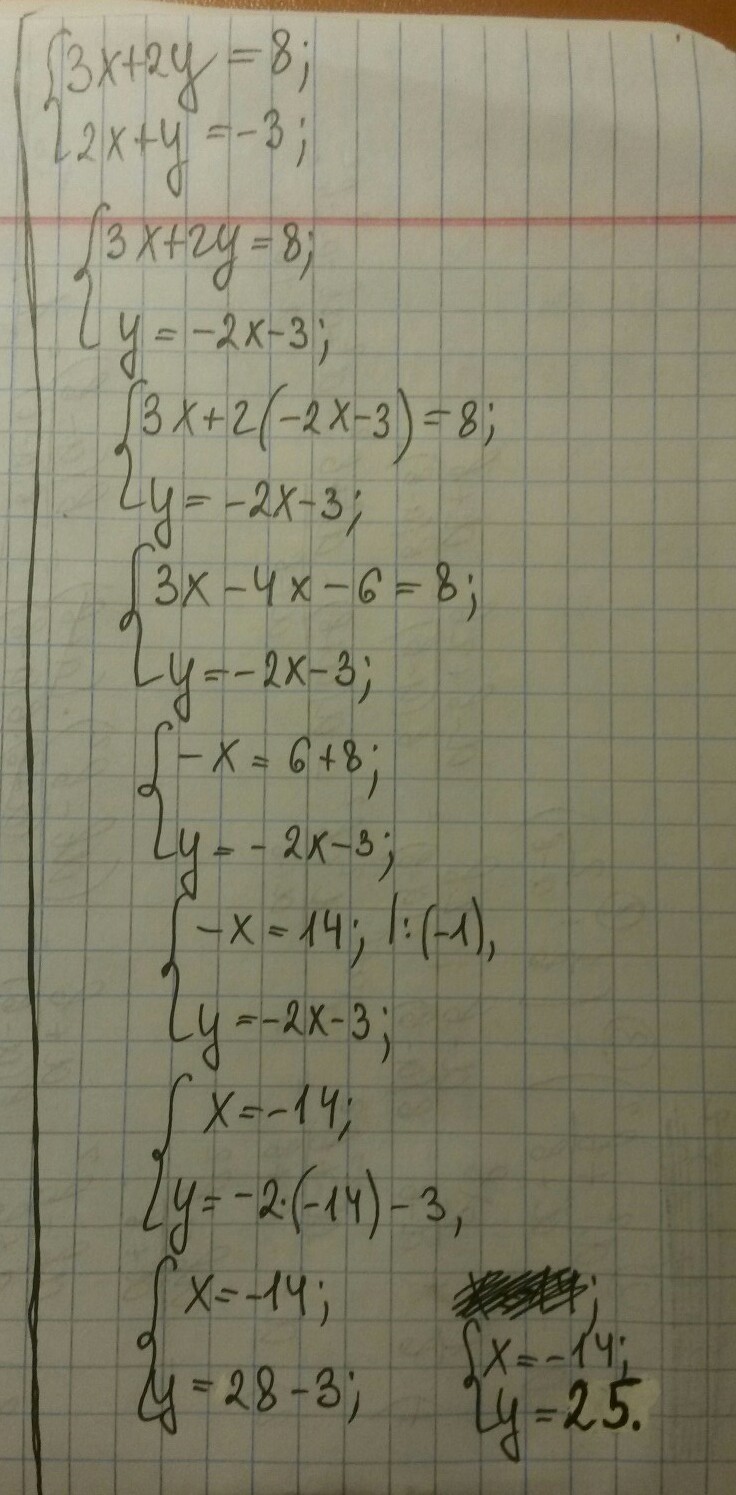 3x+2y=8;
2x+y=-3;
3x+2y=8;
y=-2x-3;
3x+2(-2x-3)=8;
y=-2x-3;
3x-4x-6=8;
y=-2x-3;
-x=6+8;
y=-2x-3;
-x=14; |:(-1),
y=-2x-3;
x=-14;
y=-2·(-14)-3,
x=-14;
y=28-3;
;
x=-14;
y=25.